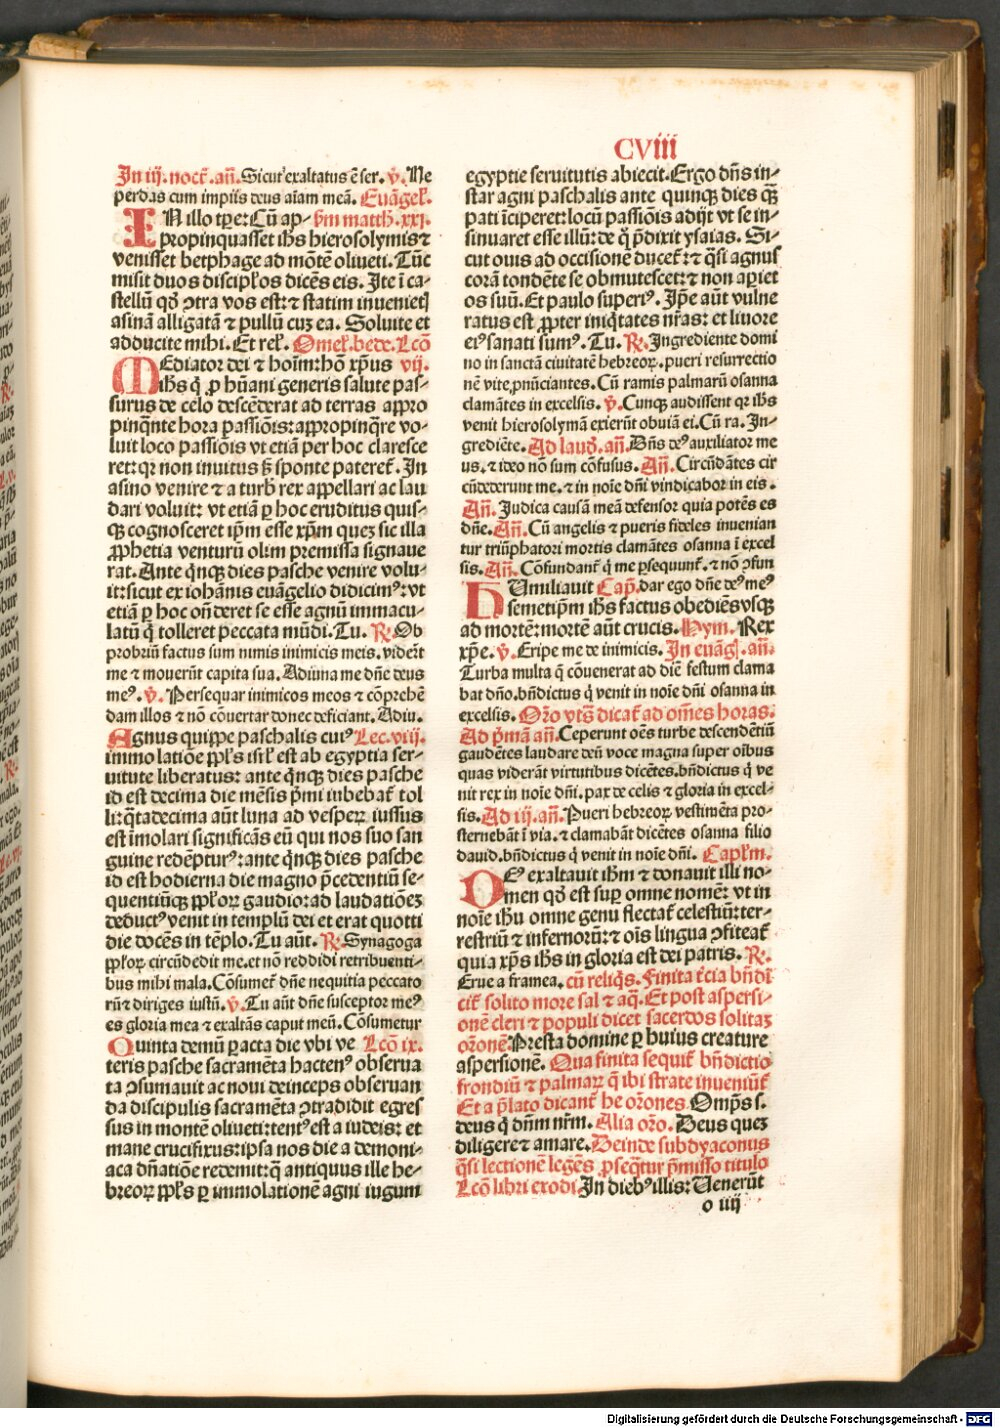 CVIII
In iij. noct̄. an̄. Sicut exaltatus ē ser. v̄. Ne
perdas cum impiis deus aīam meā. Euāgel̄.
IN illo tp̄e: Cū ap- s̄m matth. xxi.
propinquasset ih̄s hierosolymis ⁊
venisset betphage ad mōtē oliueti. Tūc
misit duos discipl̄os dicēs eis. Ite ī ca-
stellū qḋ ꝯtra vos est: ⁊ statim inuenietꝭ
asinā alligatā ⁊ pullū cuꝫ ea. Soluite et
adducite mihi. Et rel̄. Omel̄. bede. Lcō
MEdiator dei ⁊ hoīm: hō xp̄us vij.
ih̄s q̇ ꝓ hūani generis salute pas-
surus de celo descēderat ad terras appro
pinq̄nte hora passiōis: appropinq̄re vo-
luit loco passiōis vt etiā per hoc claresce
ret: qꝛ non inuitus sꝫ sponte pateret̄. In
asino venire ⁊ a turb̄ rex appellari ac lau
dari voluit: vt etiā ꝑ hoc eruditus quis-
qꝫ cognosceret ip̄m esse xp̄m queꝫ sic illa
ꝓphetia venturū olim premissa signaue
rat. Ante q̇nqꝫ dies pasche venire volu-
it: sicut ex iohānis euāgelio didicimꝰ: vt
etiā ꝑ hoc on̄deret se esse agnū immacu-
latū q̇ tolleret peccata mūdi. Tu. R̄. Ob
probriū factus sum nimis inimicis meis. viderūt
me ⁊ mouerūt capita sua. Adiuua me dn̄e deus
meꝰ. v̄. Persequar inimicos meos ⁊ cōprehē
dam illos ⁊ nō cōuertar donec deficiant. Adiu.
Agnus quippe paschalis cuiꝰ Lec. viij.
immolatiōe ppl̄s isrl̄ est ab egyptia ser-
uitute liberatus: ante q̇nqꝫ dies pasche
id est decima die mēsis p̄mi iubebat̄ tol
li: q̇rtadecima aūt luna ad vesperꝫ iussus
est īmolari significās eū qui nos suo san
guine redēpturꝰ: ante q̇nqꝫ dies pasche
id est hodierna die magno p̄cedentiū se-
quentiūqꝫ ppl̄oꝝ gaudio: ad laudatiōeꝫ
deductꝰ venit in templū dei et erat quotti
die docēs in tēplo. Tu aūt. R̄. Synagoga
ppl̄oꝝ circūdedit me. et nō reddidi retribuenti-
bus mihi mala. Cōsumet̄ dn̄e nequitia peccato
rū ⁊ diriges iustū. v̄. Tu aūt dn̄e susceptor meꝰ
es gloria mea ⁊ exaltās caput meū. Cōsumetur
Quinta demū ꝑacta die vbi ve Lcō ix.
teris pasche sacramēta hactenꝰ obserua
ta ꝯsumauit ac noui deinceps obseruan
da discipulis sacramēta ꝯtradidit egres
sus in montē oliueti: tentꝰ est a iudeis: et
mane crucifixus: ipsa nos die a demoni-
aca dn̄atiōe redemit: q̇ antiquus ille he-
breoꝝ ppl̄s ꝑ immolationē agni iugum
egyptie seruitutis abiecit. Ergo dn̄s in-
star agni paschalis ante quinqꝫ dies qꝫ
pati īciperet: locū passiōis adijt vt se in-
sinuaret esse illū: de q̇ p̄dixit ysaias. Si-
cut ouis ad occisionē ducet̄: ⁊ q̄si agnus
corā tondēte se obmutescet: ⁊ non aꝑiet
os suū. Et paulo superiꝰ. Ip̄e aūt vulne
ratus est ꝓpter iniq̇tates nr̄as: et liuore
eiꝰ sanati sumꝰ. Tu. R̄. Ingrediente domi
no in sanctā ciuitatē hebreoꝝ. pueri resurrectio
nē vite ꝓnūciantes. Cū ramis palmarū osanna
clamātes in excelsis. v̄. Cunqꝫ audissent qꝛ ih̄s
venit hierosolymā exierūt obuiā ei. Cū ra. In-
grediēte. Ad laud̄. an̄. Dn̄s deꝰ auxiliator me
us. ⁊ ideo nō sum cōfusus. An̄. Circūdātes cir
cūdederunt me. ⁊ in noīe dn̄i vindicabor in eis.
An̄. Judica causā meā defensor quia potēs es
dn̄e. An̄. Cū angelis ⁊ pueris fideles inuenian
tur triūphatori mortis clamātes osanna ī excel
sis. An̄. Cōfundant̄ q̇ me ꝑsequunt̄. ⁊ nō ꝯfun
HUmiliauit Cap̄. dar ego dn̄e deꝰ meꝰ
semetip̄m ih̄s factus obediēs vsqꝫ
ad mortē: mortē aūt crucis. Hym. Rex
xp̄e. v̄. Eripe me de inimicis. In euāḡ. an̄.
Turba multa q̄ cōuenerat ad diē festum clama
bat dn̄o. bn̄dictus q̇ venit in noīe dn̄i osanna in
excelsis. Orō vt sꝫ dicat̄ ad om̄es horas.
Ad p̄mā an̄. Ceperunt oēs turbe descendētiū
gaudētes laudare deū voce magna super oībus
quas viderāt virtutibus dicētes. bn̄dictus q̇ ve
nit rex in noīe dn̄i. pax de celis ⁊ gloria in excel-
sis. Ad iij. an̄. Pueri hebreoꝝ vestimēta pro-
sternebāt ī via. ⁊ clamabāt dicētes osanna filio
dauid. bn̄dictus q̇ venit in noīe dn̄i. Capl̄m.
DEꝰ exaltauit ih̄m ⁊ donauit illi no-
men qḋ est suꝑ omne nomē: vt in
noīe ih̄u omne genu flectat̄ celestiū: ter-
restriū ⁊ infernorū: ⁊ oīs lingua ꝯfiteat̄
quia xp̄s ih̄s in gloria est dei patris. R̄.
Erue a framea. cū reliq̇s. Finita t̄cia bn̄dī
cit̄ solito more sal ⁊ aq̄. Et post aspersi-
onē cleri ⁊ populi dicet sacerdos solitaꝫ
orōnē. Presta domine ꝑ huius creature
aspersionē. Qua finita sequit̄ bn̄dictio
frondiū ⁊ palmaꝝ q̄ ibi strate inueniūt̄
Et a p̄lato dicant̄ he orōnes. Omp̄s s.
deus q̇ dn̄m nr̄m. Alia orō. Deus queꝫ
diligere ⁊ amare. Deinde subdyaconus
q̄si lectionē legēs ꝓseq̇tur p̄misso titulo
Lcō libri exodi. In diebꝰ illis: Uenerūt
o iiij
Digitalisierung gefördert durch die Deutsche Forschungsgemeinschaft - DFG